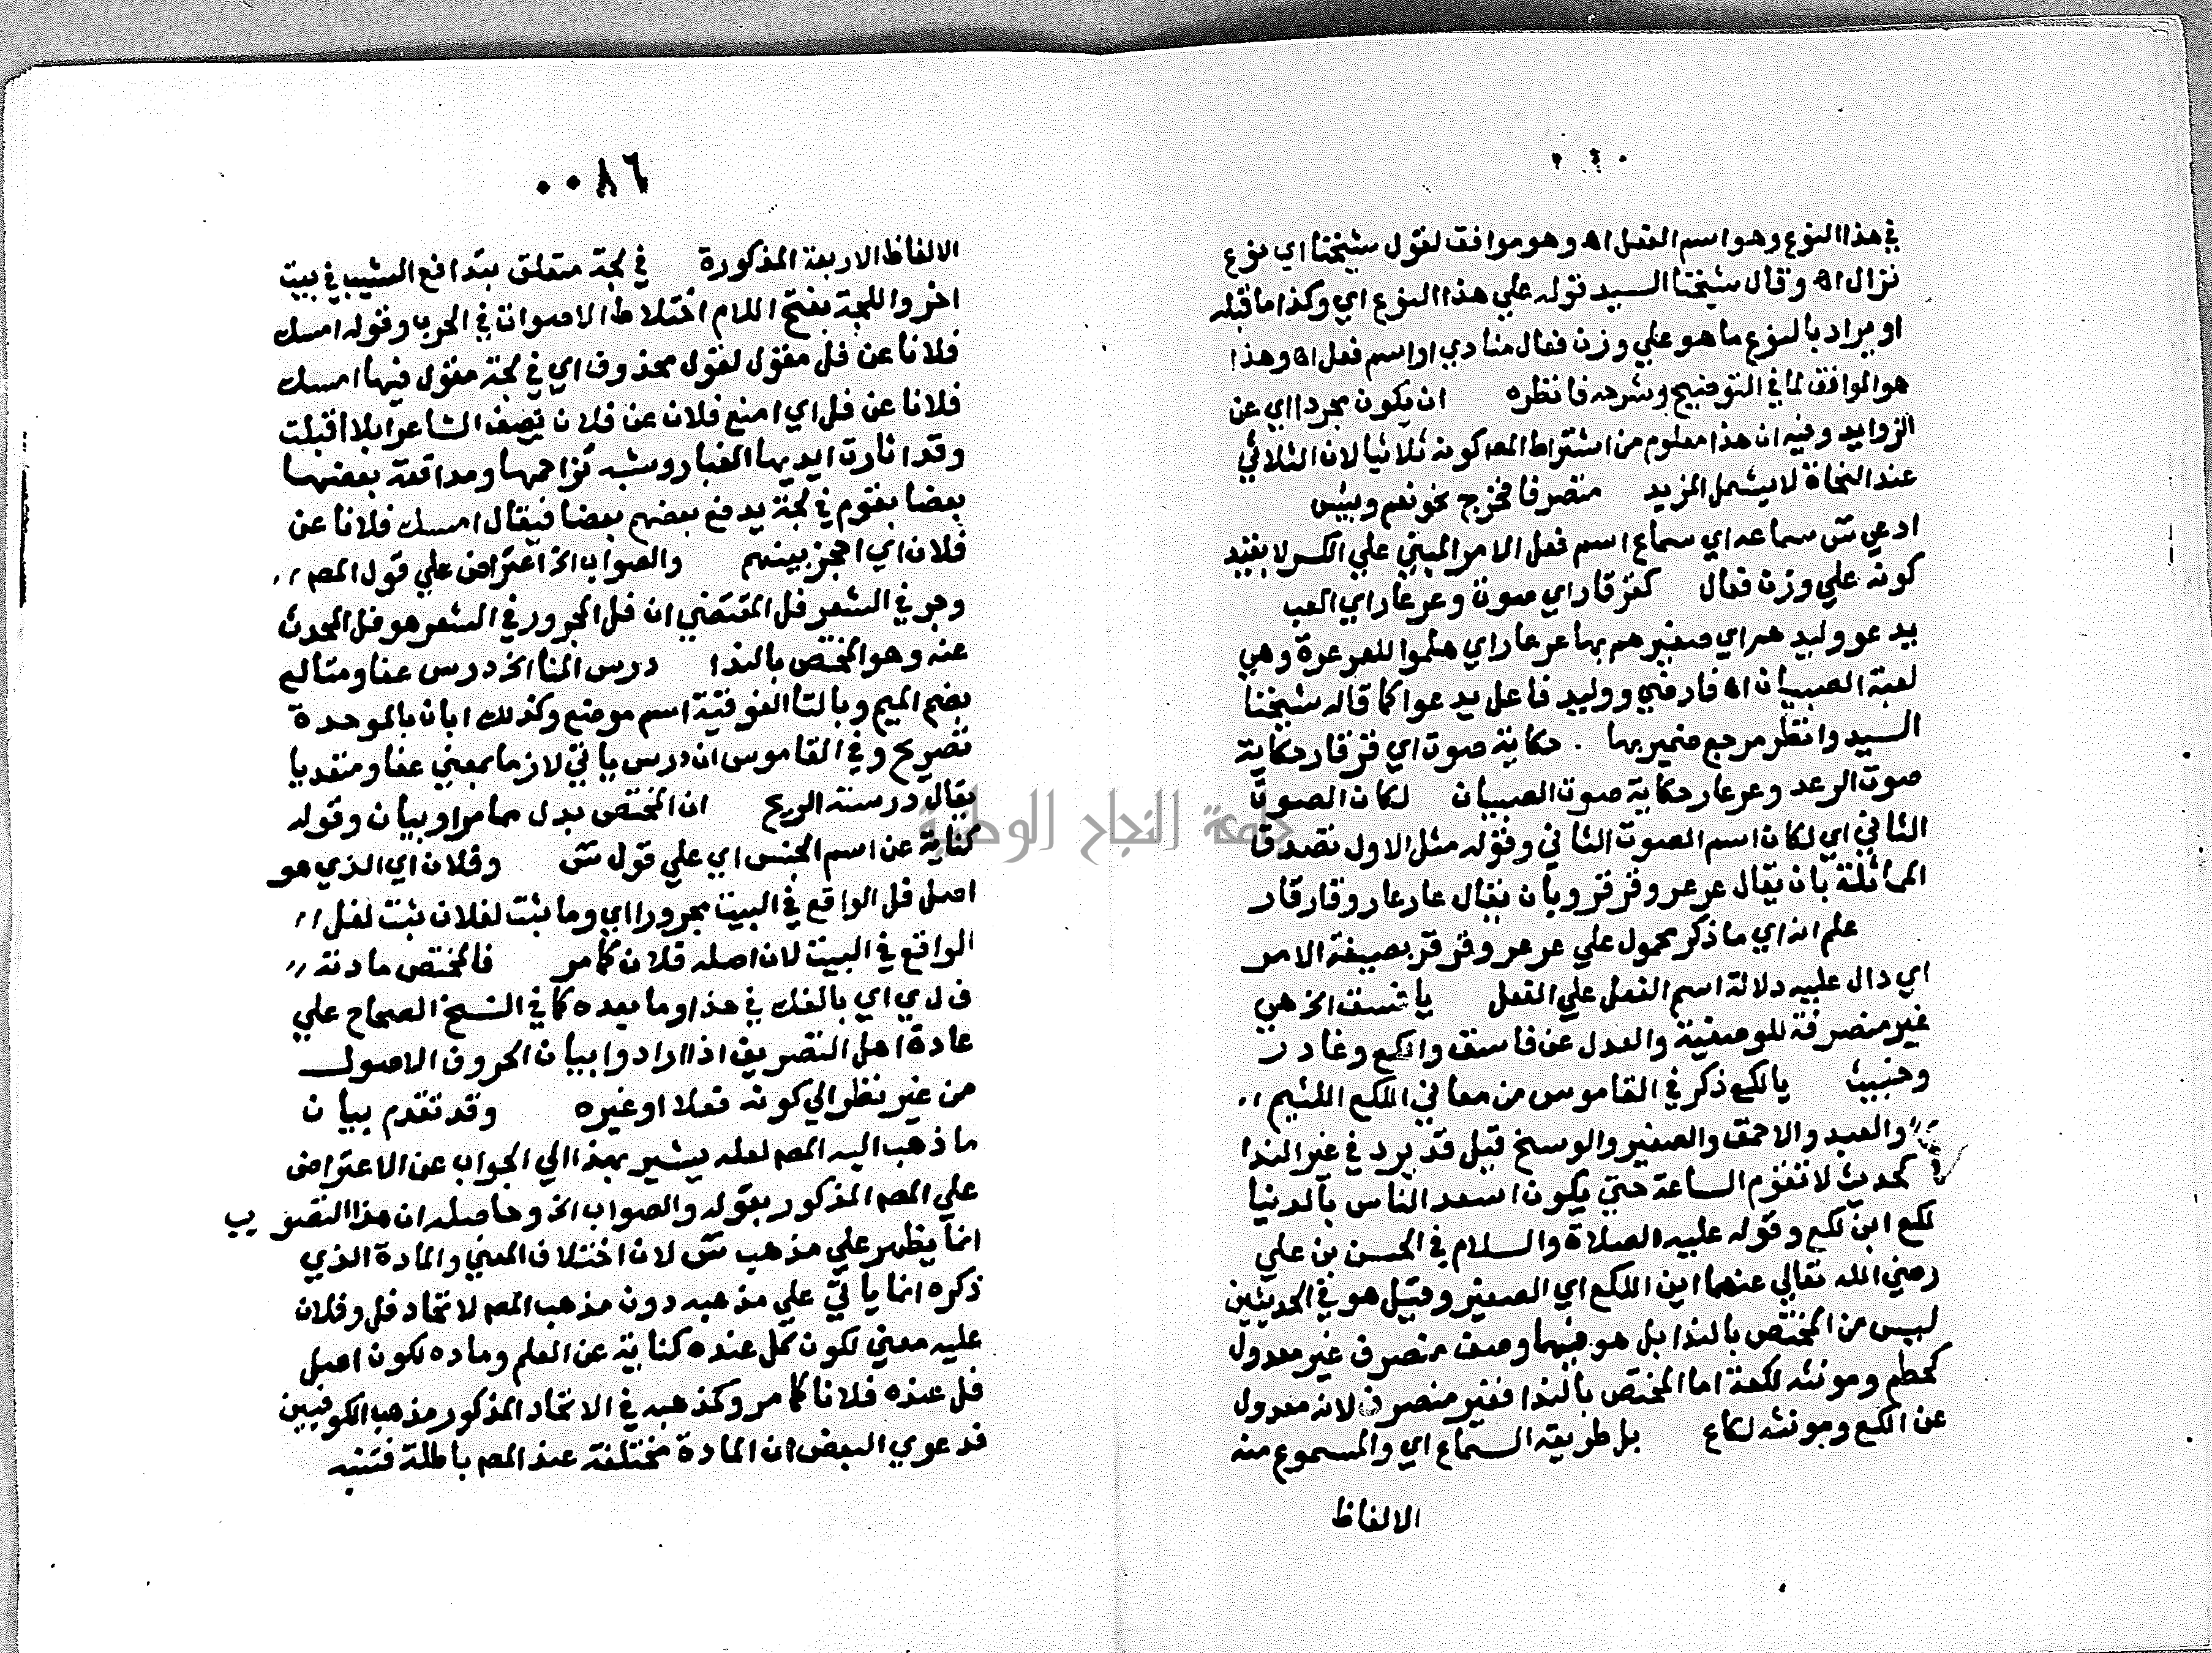 في هذا النوع وهو اسم الفعل اه وهو موافق لقول شيخنا اي نوع
نزال اه وقال شيخنا السيد قوله علي هذا النوع اي وكذا ما قبله
او يراد بالنوع ما هو علي وزن فعال منادي او اسم فعل اه وهذا
هو الموافق لما في التوضيح وشرحه فانظره ان يكون مجردا اي عن
الزوايد وفيه ان هذا معلوم من اشتراط المص كونه ثلاثيا لان الثلاثي
عند النحاة لا يشمل المزيد متصرفا فخرج نحو نعم وبيس
ادعي س سماعه اي سماع اسم فعل الامر المبني علي الكسر لا بقيد
كونه علي وزن فعال كقرقار اي صوت وعرعار اي العب
يدعو وليدهم اي صغيرهم بها عرعار اي هلموا للعرعرة وهي
لعبة الصبيان اه فارضي ووليد فاعل يدعوا كما قاله شيخنا
السيد وانظر مرجع ضمير بها . حكاية صوت اي قرقار حكاية
صوت الرعد وعرعار حكاية صوت الصبيان لكان الصوت
الثاني اي لكان اسم الصوت الثاني وقوله مثل الاول تصدق
المماثلة بان يقال عرعر وقرقر وبان يقال عارعار وقارقار
علم انه اي ما ذكر محمول علي عرعر وقرقر بصيغة الامر
اي دال عليه دلالة اسم الفعل علي الفعل يا فسق الخ هي
غير منصرفة للوصفية والعدل عن فاسق والكع وغادر
وخبيث يالكع ذكر في القاموس من معاني اللكع اللئيم
والعبد والاحمق والصغير والوسخ قيل قد يرد في غير الندا
كحديث لا تقوم الساعة حتي يكون اسعد الناس بالدنيا
لكع ابن لكع وقوله عليه الصلاة والسلام في الحسن بن علي
رضي الله تعالي عنهما اين اللكع اي الصغير وقيل هو في الحديثين
ليس من المختص بالندا بل هو فيهما وصف منصرف غير معدول
كحطم ومونثه لكعة اما المختص بالندا فغير منصرف لانه معدول
عن الكع ومونثه لكاع بل طريقه السماع اي والمسموع منه
الالفاظ
٠٠٨٦
الالفاظ الاربعة المذكورة في لجة متعلق بتدافع الشيب في بيت
اخر واللجة بفتح اللام اختلاط الاصوات في الحرب وقوله امسك
فلانا عن فل مقول لقول محذوف اي في لجة مقول فيها امسك
فلانا عن فل اي امنع فلان عن فلان تصف الشاعر ابلا اقبلت
وقد اثارت ايديها الغبار وشبه تزاحمها ومدافعة بعضها
بعضا بقوم في لجة يدفع بعضهم بعضا فيقال امسك فلانا عن
فلان اي احجز بينهم والصواب الخ اعتراض علي قول المص
وجر في الشعر فل المقتضي ان فل المجرور في الشعر هو فل المحدث
عنه وهو المختص بالندا درس المنا الخ درس عفا ومتالع
بضم الميم وبالتا الفوقية اسم موضع وكذلك ابان بالموحدة
تصريح وفي القاموس ان درس ياتي لازما بمعني عفا ومتعديا
يقال درسته الريح ان المختص بدل مما مر او بيان وقوله
كناية عن اسم الجنس اي علي قول س وفلان اي الذي هو
اصل فل الواقع في البيت مجرورا اي وما يثبت لفلان يثبت لفل
الواقع في البيت لان اصله فلان كما مر فالمختص مادته
ف ل ي اي بالفك في هذا وما بعده كما في النسخ الصحاح علي
عادة اهل التصريف اذا ارادوا بيان الحروف الاصول
من غير نظر الي كونه فعلا او غيره وقد تقدم بيان
ما ذهب اليه المص لعله يشير بهذا الي الجواب عن الاعتراض
علي المص المذكور بقوله والصواب الخ وحاصله ان هذا التصويب
انما يظهر علي مذهب س لان اختلاف المعني والمادة الذي
ذكره انما ياتي علي مذهبه دون مذهب المص لاتحاد فل وفلان
عليه معني لكون كل عنده كناية عن العلم وماده لكون اصل
فل عنده فلانا كما مر وكمذهبه في الاتحاد المذكور مذهب الكوفيين
فدعوي البعض ان المادة مختلفة عند المص باطلة فتنبه